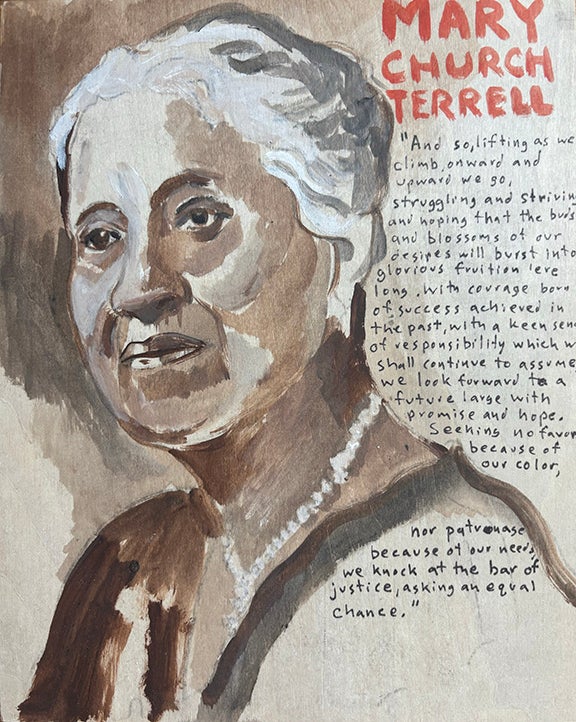 MARY
CHURCH
TERRELL
"And so, lifting as we
climb, onward and
upward we go,
struggling and strivin
and hoping that the buds
and blossoms of our
desires will burst into
glorious fruition 'ere
long. With courage born
of success achieved in
the past, with a keen sens
of responsibility which w
shall continue to assume
we look forward to a
future large with
promise and hope.
Seeking no favor
because of
our color,
nor patronage
because of our needs,
we knock at the bar of
justice, asking an equal
chance."